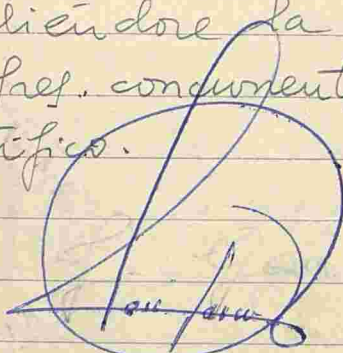 liéndose la
Pres. concurrent
tifico.